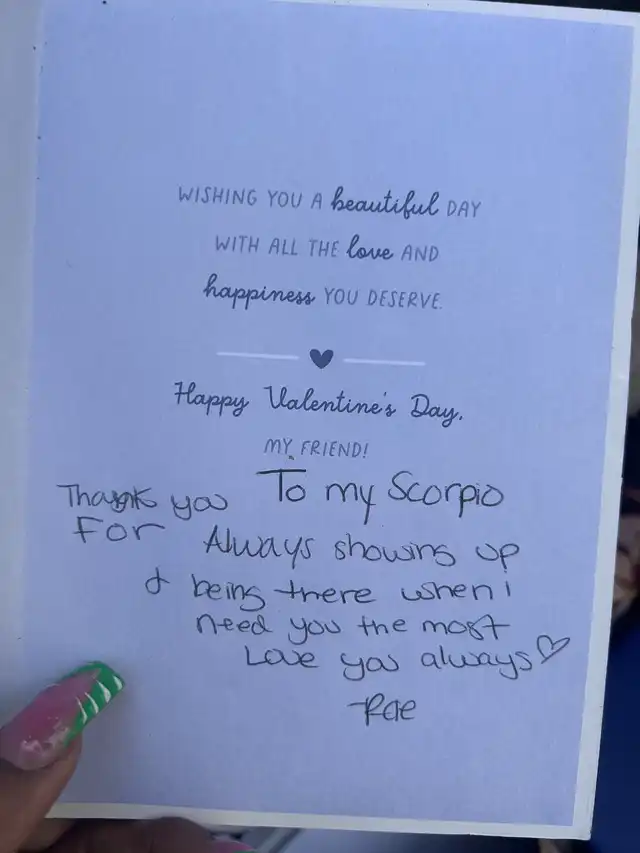 WISHING YOU A beautiful DAY
WITH ALL THE love AND
happiness YOU DESERVE.
Happy Valentine's Day,
MY FRIEND!
To my Scorpio
Thank you
For Always showing up
& being there when i
need you the most
Love you always♡
-Rae